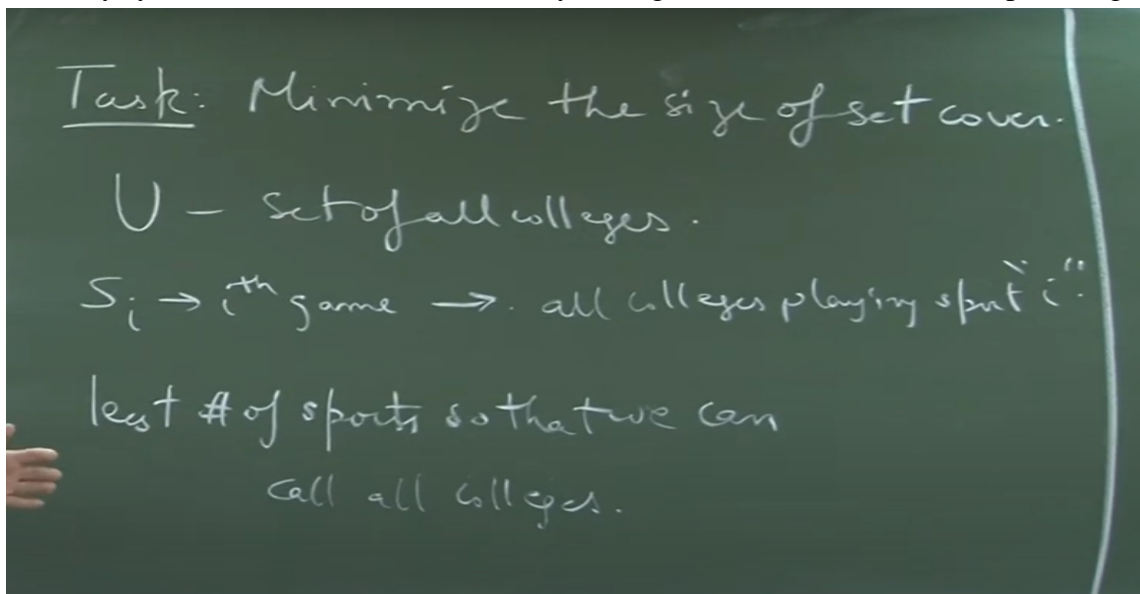 Task: Minimize the size of set cover.
U - set of all colleges.
Si → ith game →. all colleges playing sport "i".
least # of sports so that we can
call all colleges.